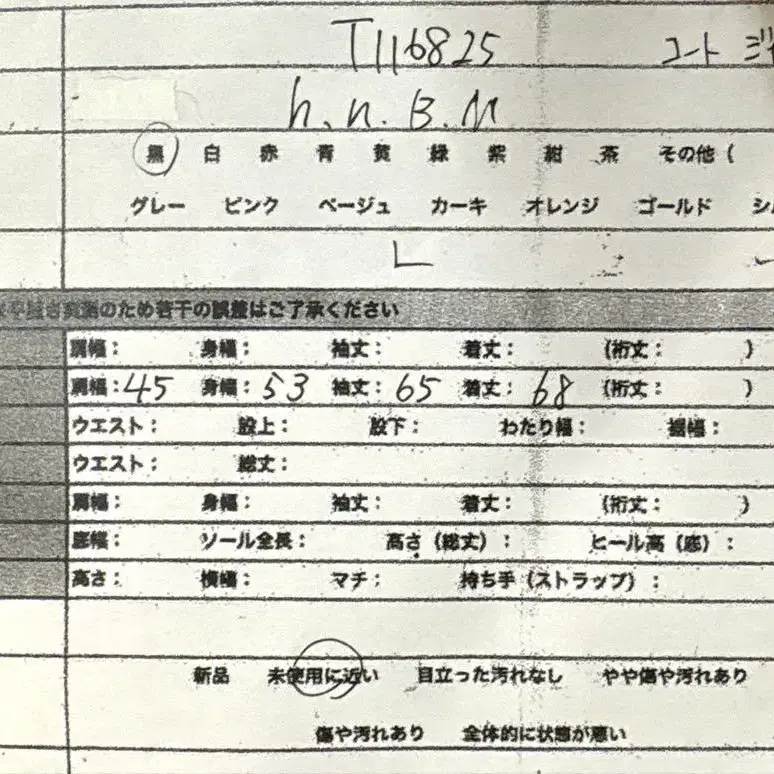 T116825 コート
h.n.B.M
黒 白 赤 青 黄 緑 紫 紺 茶 その他（
グレー ピンク ベージュ カーキ オレンジ ゴールド シル
L
のため若干の誤差はご了承ください
肩幅： 身幅： 袖丈： 着丈： （裄丈： ）
肩幅：45 身幅：53 袖丈：65 着丈：68 （裄丈： ）
ウエスト： 股上： 股下： わたり幅： 裾幅：
ウエスト： 総丈：
肩幅： 身幅： 袖丈： 着丈： （裄丈： ）
底幅： ソール全長： 高さ（総丈）： ヒール高（底）：
高さ： 横幅： マチ： 持ち手（ストラップ）：
新品 未使用に近い 目立った汚れなし やや傷や汚れあり
傷や汚れあり 全体的に状態が悪い